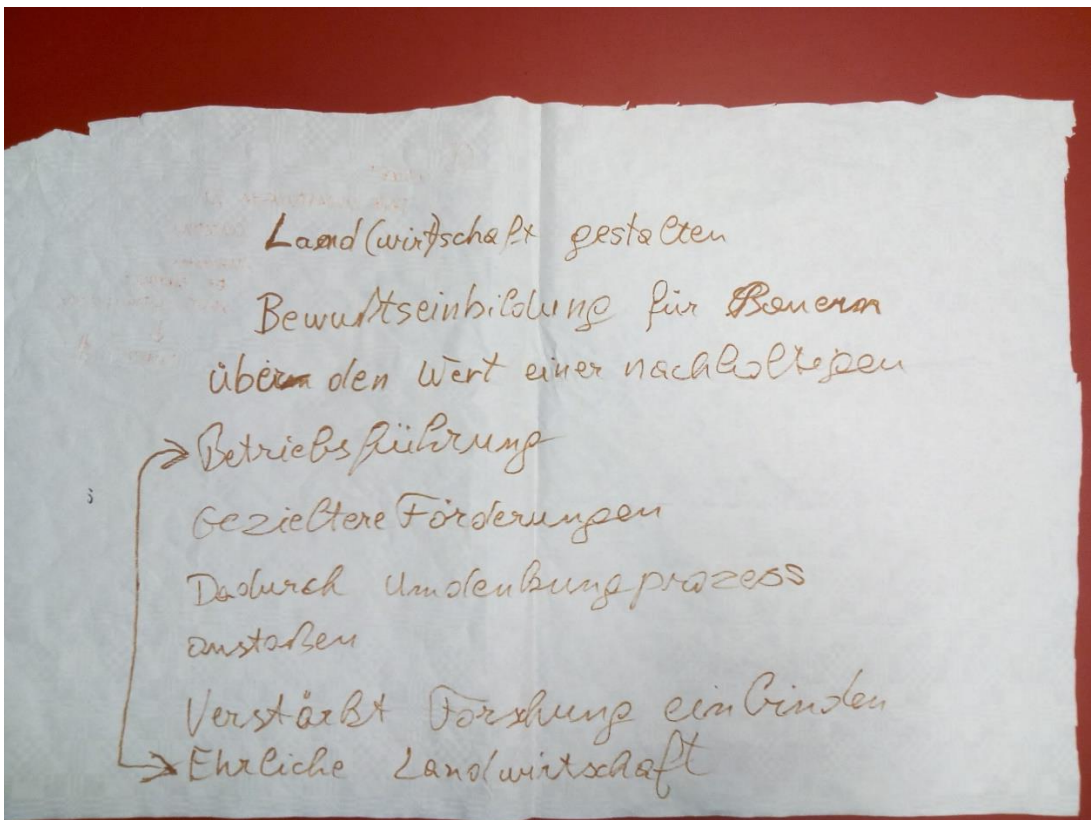 Land(wirt)schaft gestalten
Bewußtseinbildung für Bauern
über den Wert einer nachhaltigen
Betriebsführung
Gezieltere Förderungen
Dadurch Umdenkungprozess
anstoßen
Verstärkt Forschung einbinden
Ehrliche Landwirtschaft